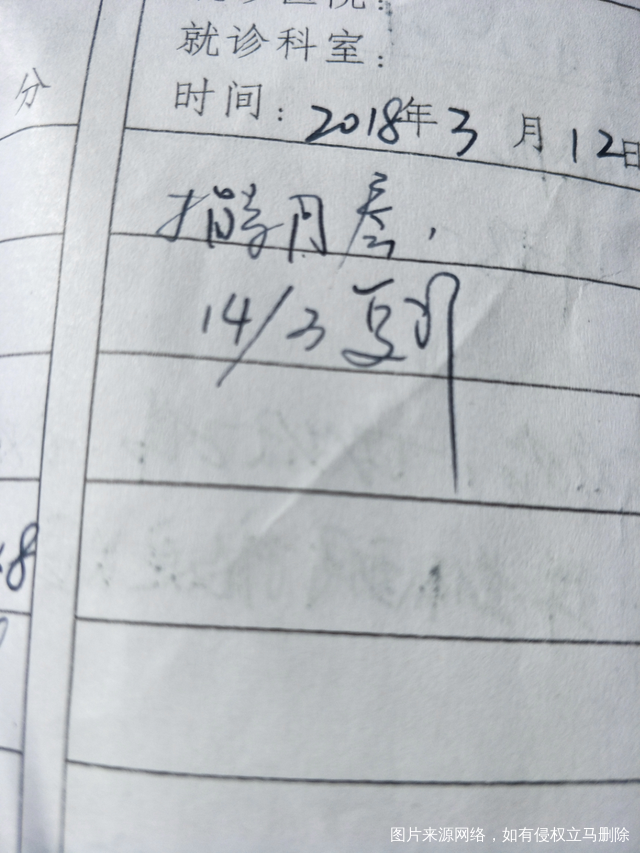 就诊科室：
时间：2018年3月12日
指导同房，
14/3 复诊
分
8
图片来源网络，如有侵权立马删除